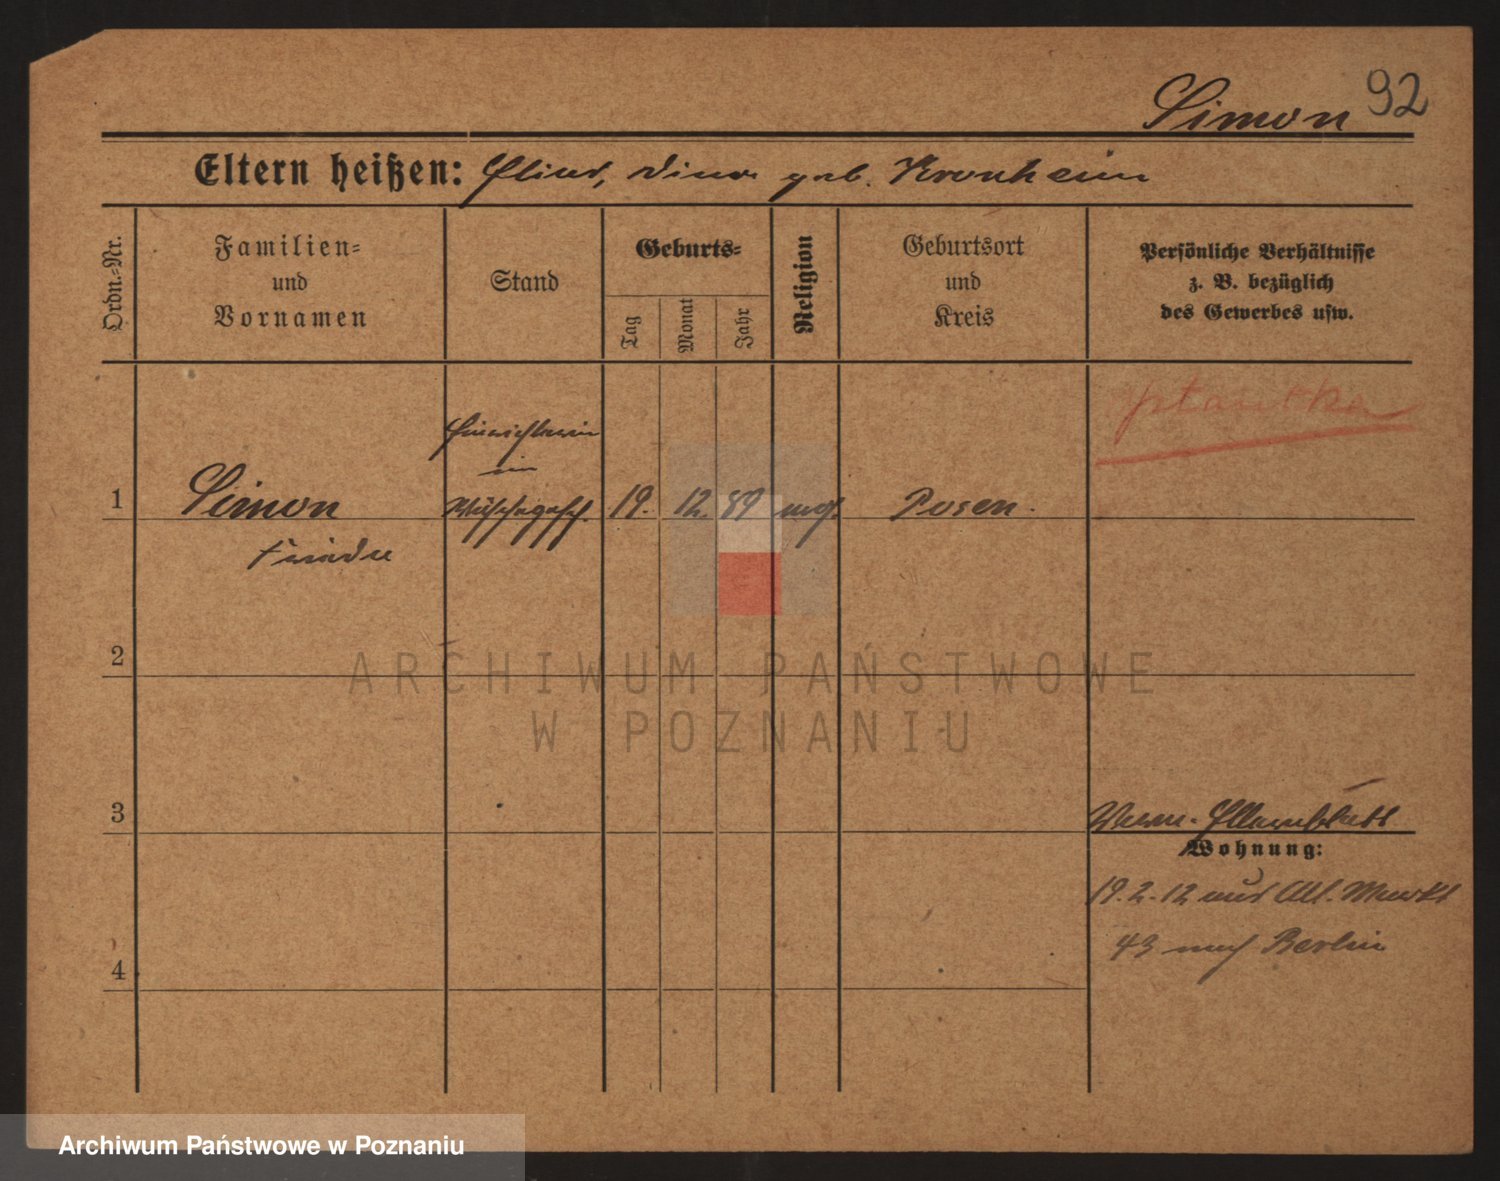 Simon 92
Eltern heißen: geb. Kronheim
Ordn.-Nr.
Familien-
und
Vornamen
Stand
Geburts-
Tag
Monat
Jahr
Religion
Geburtsort
und
Kreis
Persönliche Verhältnisse
z. B. bezüglich
des Gewerbes usw.
1
Simon
19. 12. 89 Posen.
2
ARCHIWUM PAŃSTWOWE
W POZNANIU
3
Wohnung:
19.2.12 aus Alt. Markt
43 nach Berlin
4
Archiwum Państwowe w Poznaniu